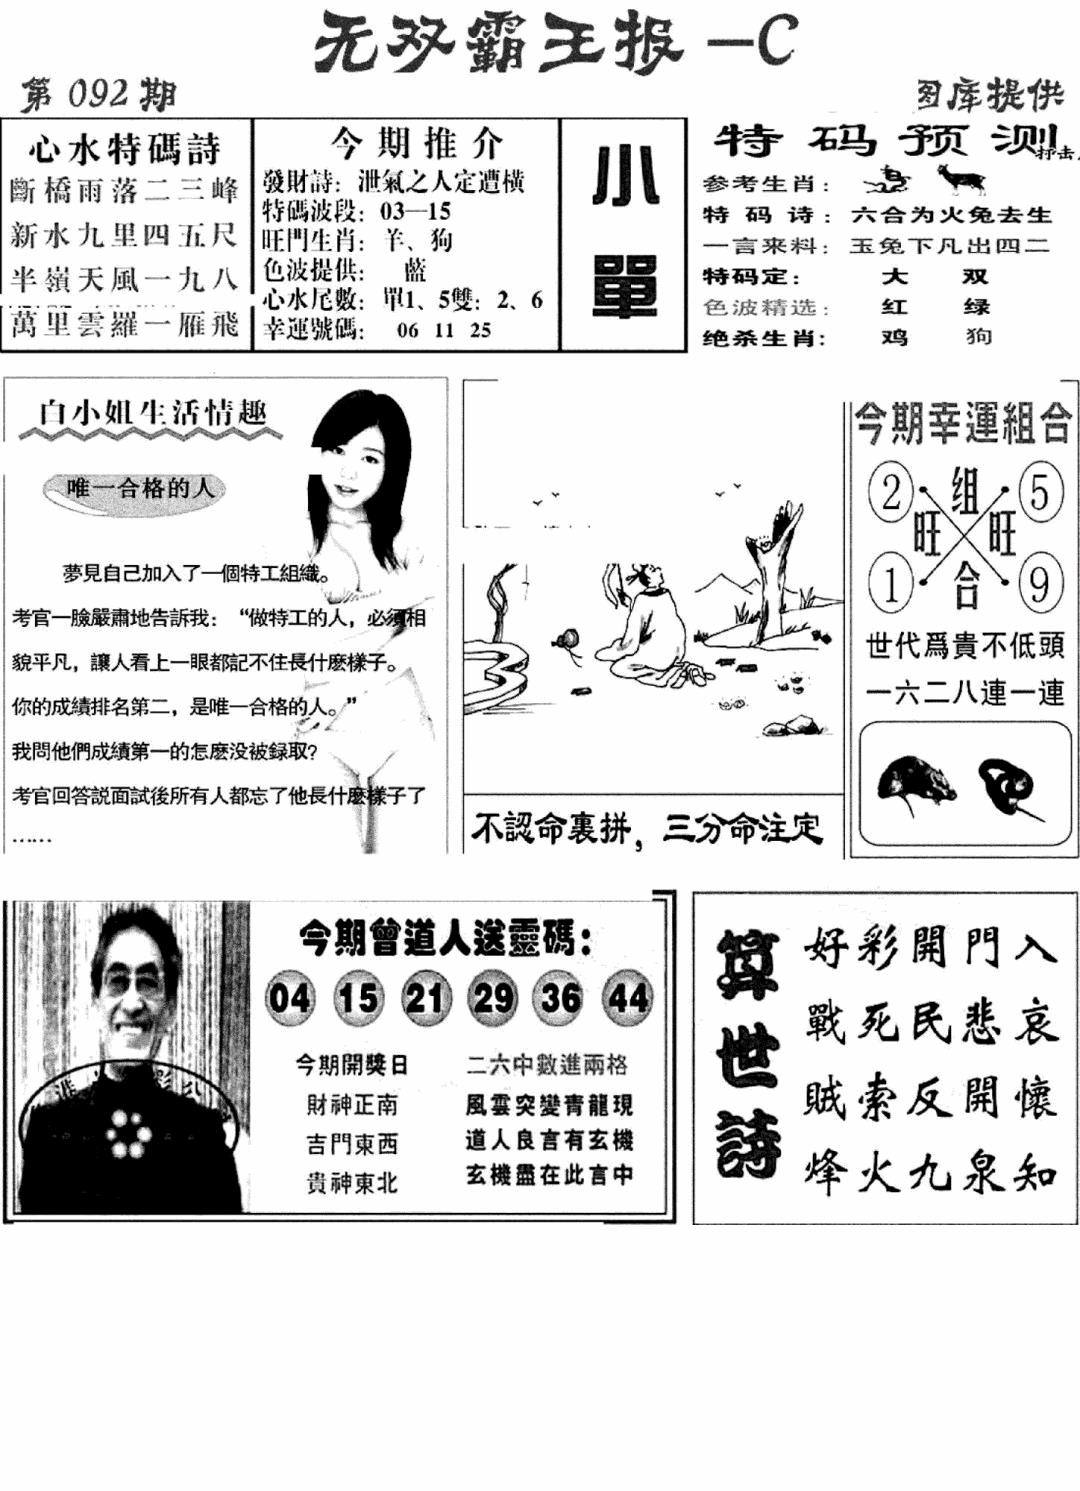 无双霸王报—C
第092期
图库提供
心水特碼詩
斷橋雨落二三峰
新水九里四五尺
半嶺天風一九八
萬里雲羅一雁飛
今期推介
發財詩：泄氣之人定遭橫
特碼波段：03—15
旺門生肖：羊、狗
色波提供：藍
心水尾數：單1、5雙：2、6
幸運號碼：06 11 25
小
單
特码预测
参考生肖：
特码诗：六合为火兔去生
一言来料：玉兔下凡出四二
特码定：大 双
色波精选：红 绿
绝杀生肖：鸡 狗
白小姐生活情趣
唯一合格的人
夢見自己加入了一個特工組織。
考官一臉嚴肅地告訴我：“做特工的人，必須相
貌平凡，讓人看上一眼都記不住長什麼樣子。
你的成績排名第二，是唯一合格的人。”
我問他們成績第一的怎麼没被録取?
考官回答説面試後所有人都忘了他長什麼樣子了
……
不認命裏拼，三分命注定
今期幸運組合
2 组 5
旺 旺
1 合 9
世代爲貴不低頭
一六二八連一連
今期曾道人送靈碼：
04 15 21 29 36 44
今期開獎日
財神正南
吉門東西
貴神東北
二六中數進兩格
風雲突變青龍現
道人良言有玄機
玄機盡在此言中
算世詩
好彩開門入
戰死民悲哀
賊索反開懷
烽火九泉知